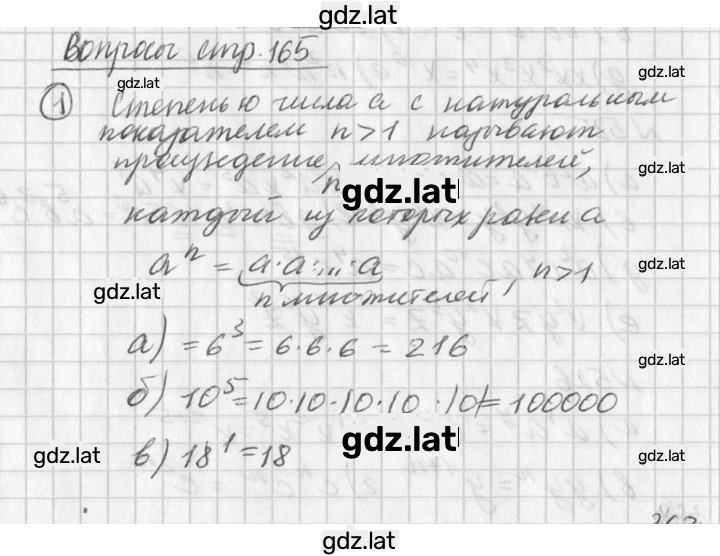 gdz.lat
Вопросы стр. 165
gdz.lat gdz.lat
1 Степенью числа a с натуральным
показателем n>1 называют
произведение n множителей,
gdz.lat
gdz.lat
каждый из которых равен a
aⁿ = a·a·...·a, n>1
gdz.lat gdz.lat
n множителей
а) = 6³ = 6·6·6 = 216
gdz.lat
б) 10⁵ = 10·10·10·10·10 = 100000
gdz.lat
в) 18¹ = 18
gdz.lat gdz.lat
gdz.lat